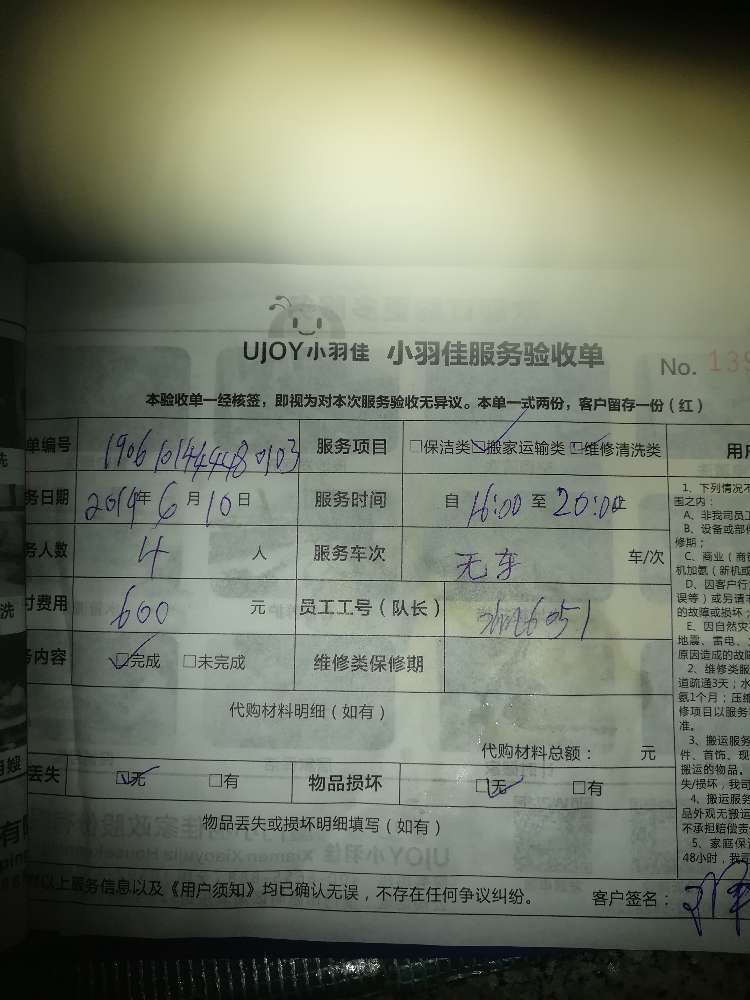 UJOY小羽佳 小羽佳服务验收单
No. 139
本验收单一经核签，即视为对本次服务验收无异议。本单一式两份，客户留存一份（红）
单编号 190610144480103 服务项目 □保洁类 ☑搬家运输类 □维修清洗类
务日期 2019年6月10日 服务时间 自 16:00 至 20:00止
务人数 4 人 服务车次 无车 车/次
付费用 600 元 员工工号（队长） 6051
务内容 ☑完成 □未完成 维修类保修期
代购材料明细（如有）
代购材料总额： 元
丢失 ☑无 □有 物品损坏 ☑无 □有
物品丢失或损坏明细填写（如有）
以上服务信息以及《用户须知》均已确认无误，不存在任何争议纠纷。 客户签名：
用户
1、下列情况不
围之内：
A、非我司员工
B、设备或部件
修期；
C、商业（商
机加氨（新机或
D、因客户行
误等）或另请
的故障或损坏；
E、因自然灾
地震、雷电、
原因造成的故障
2、维修类服
道疏通3天；水
氨1个月；压缩
修项目以服务
准。
3、搬运服务
件、首饰、现
搬运的物品。
失/损坏，我司
4、搬运服务
品外观无搬运
不承担赔偿责
5、家庭保洁
48小时，我司